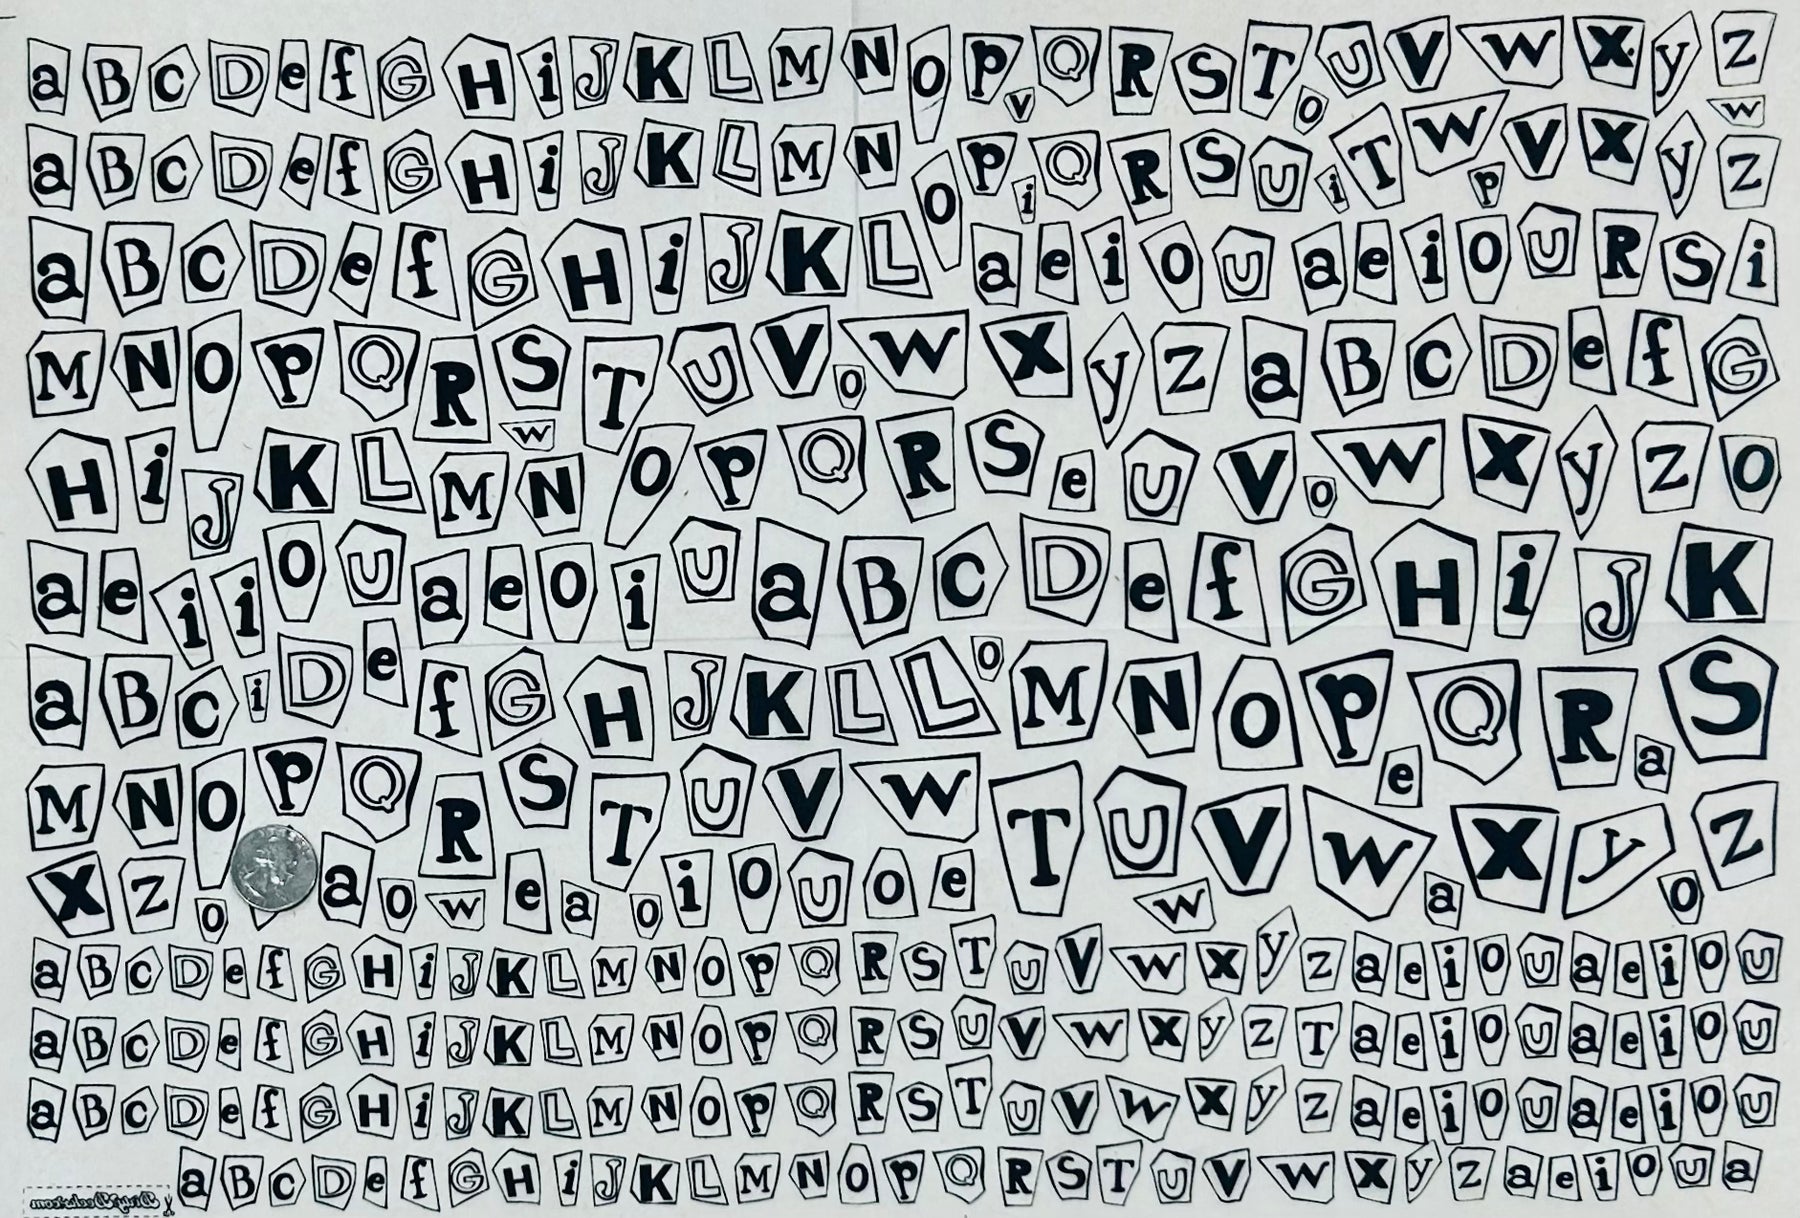 a B C D e f G H i J K L M N O P v Q R S T o U V W X y Z w
a B C D e f G H i J K L M N O P i Q R S U i T W p V X y Z
a B C D e f G H i J K L a e i o u a e i o u R S i
M N O P Q R S w T U V o W X y Z a B C D e f G
H i J K L M N O P Q R S e U V o W X y Z O
a e i i o u a e o i u a B C D e f G H i J K
a B C i D e f G H J K L L o M N O P e Q R a S
M N O P Q R S T U V W T U V W a X y o Z
X Z o a o w e a o i o u o e w
a B C D e f G H i J K L M N O P Q R S T U V W X y Z a e i o u a e i o u
a B C D e f G H i J K L M N O P Q R S U V W X y Z T a e i o u a e i o u
a B C D e f G H i J K L M N O P Q R S T U V W X y Z a e i o u a e i o u
a B C D e f G H i J K L M N O P Q R S T U V W X y Z a e i o u a